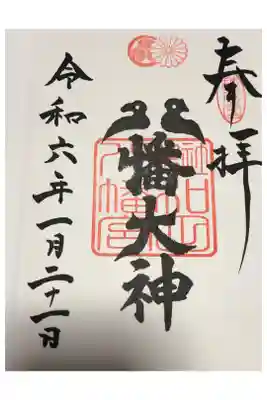 奉拝
八幡大神
令和六年一月二十一日